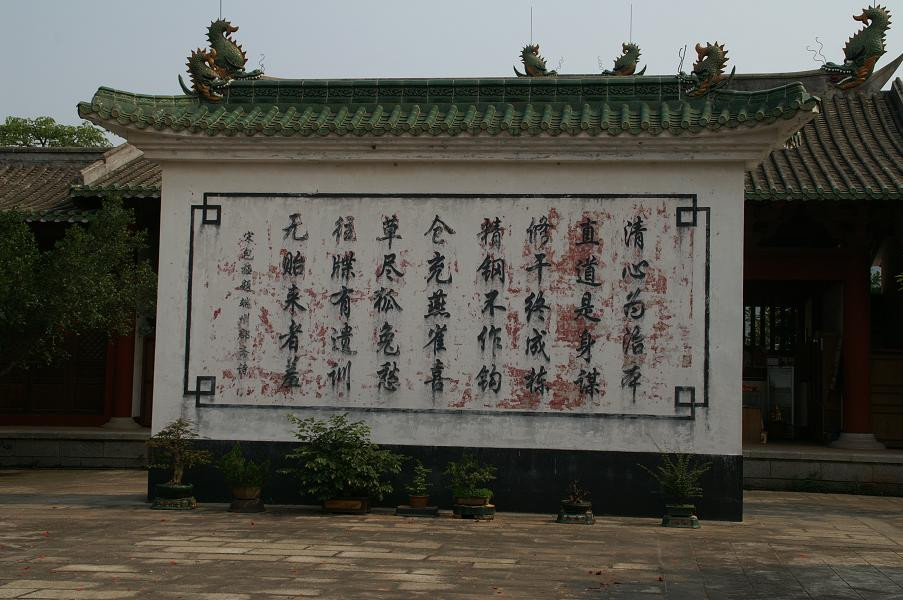 清心为治本
直道是身谋
修干终成栋
精钢不作钩
仓充燕雀喜
草尽狐兔愁
往牒有遺训
无贻来者羞
宋包拯題端州郡斋詩